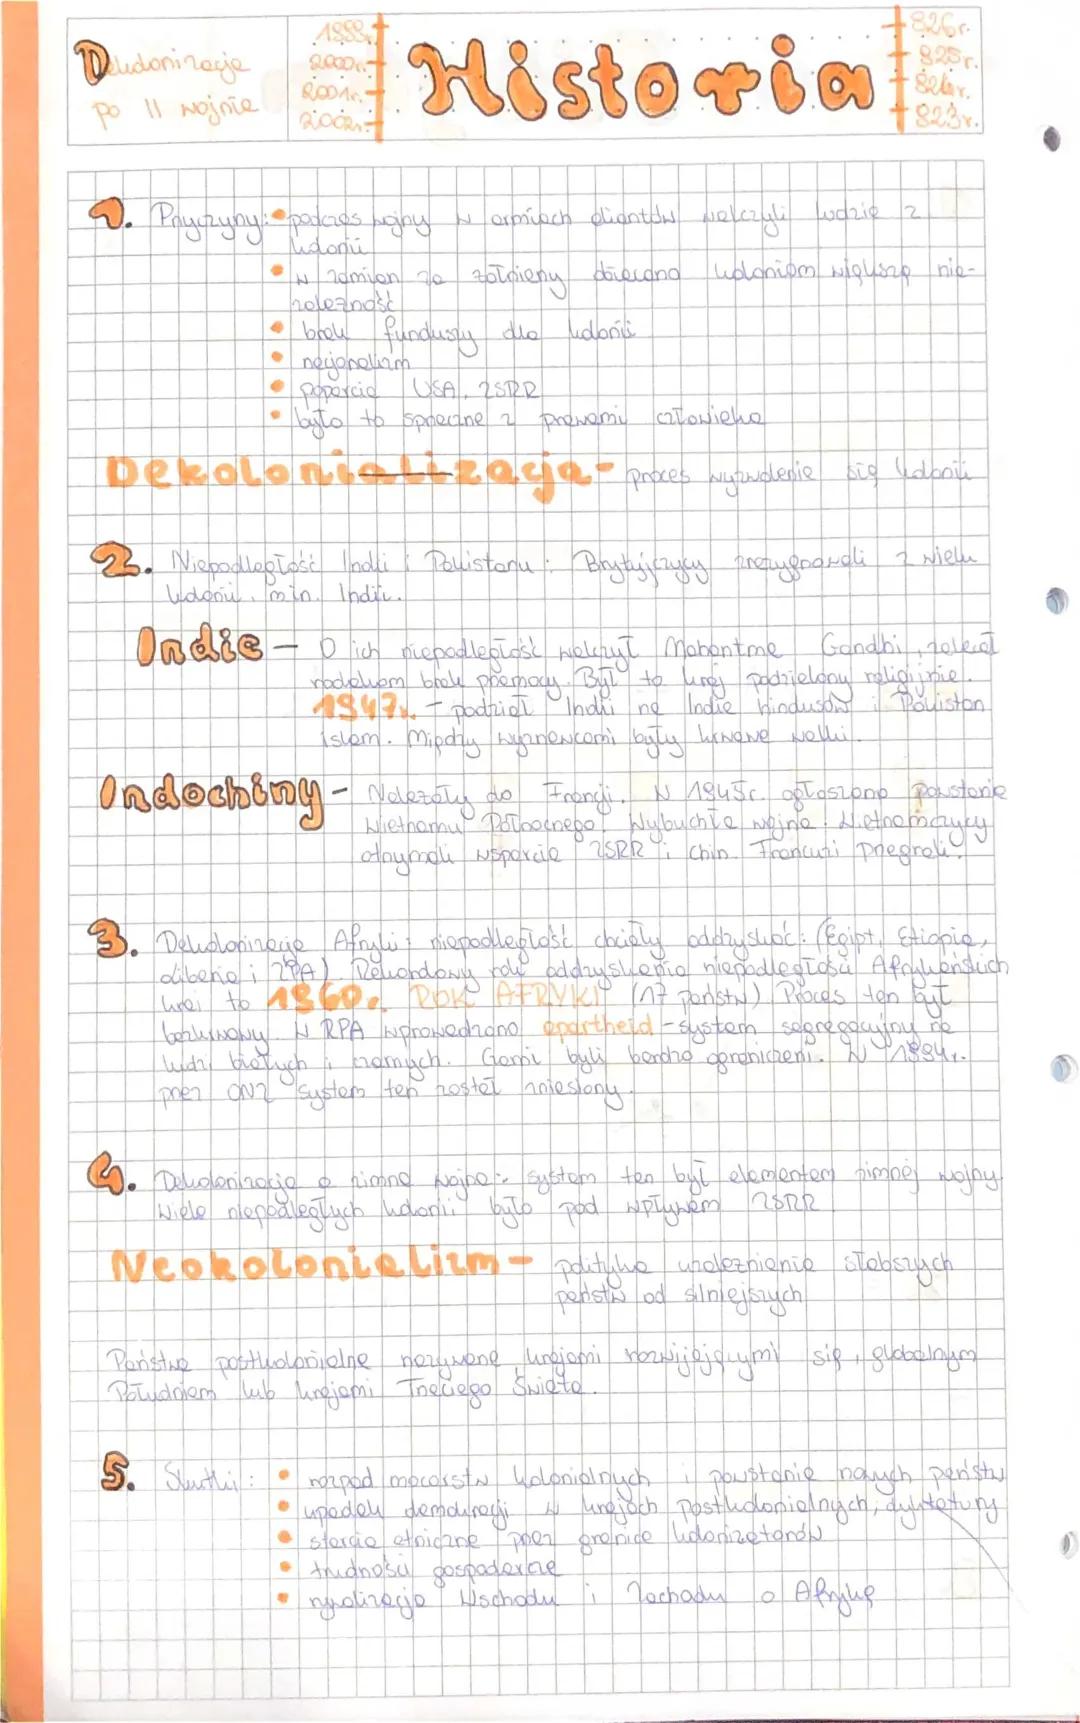 Dekolonizacja
po II wojnie
1999r.
2000r.
2001r.
2002r.
Historia
826r.
825r.
824r.
823r.
1. Przyczyny: • podczas wojny w armiach aliantów walczyli ludzie z
kolonii
• w zamian za żołnierzy obiecano koloniom większą nie-
zależność
• brak funduszy dla kolonii
• nacjonalizm
• poparcie USA, ZSRR
• było to sprzeczne z prawami człowieka
Dekolonializacja - proces wyzwolenia się kolonii
2. Niepodległość Indii i Pakistanu: Brytyjczycy zrezygnowali z wielu
kolonii, min. Indii.
Indie - O ich niepodległość walczył Mahantma Gandhi, zalecał
rodakom brak przemocy. Był to kraj podzielony religijnie.
1947r. - podział Indii na Indie hindusów i Pakistan
islam. Między wyznawcami były krwawe walki.
Indochiny - Należały do Francji. W 1945r. ogłoszono powstanie
Wietnamu Północnego. Wybuchła wojna. Wietnamczycy
otrzymali wsparcie ZSRR i chin. Francuzi przegrali.
3. Dekolonizacja Afryki: niepodległość chciały oddzyskać: (Egipt, Etiopia,
Liberia i RPA). Rekordowy rok oddzyskania niepodległości Afrykańskich
krai to 1960r. ROK AFRYKI (17 państw) Proces ten był
bezkrwawy. W RPA wprowadzono apartheid - system segregacyjny na
ludzi białych i czarnych. Czarni byli bardzo ograniczeni. W 1994r.
przez ONZ system ten został zniesiony.
4. Dekolonizacja a zimna wojna: system ten był elementem zimnej wojny.
Wiele niepodległych kolonii było pod wpływem ZSRR
Neokolonializm - polityka uzależniania słabszych
państw od silniejszych
Państwa postkolonialne nazywane krajami rozwijającymi się, globalnym
Południem lub krajami Trzeciego Świata.
5. Skutki: • rozpad mocarstw kolonialnych i powstanie nowych państw
• upadek demokracji w krajach postkolonialnych, dyktatury
• starcia etniczne przez granice kolonizatorów
• trudności gospodarcze
• rywalizacja Wschodu i Zachodu o Afrykę